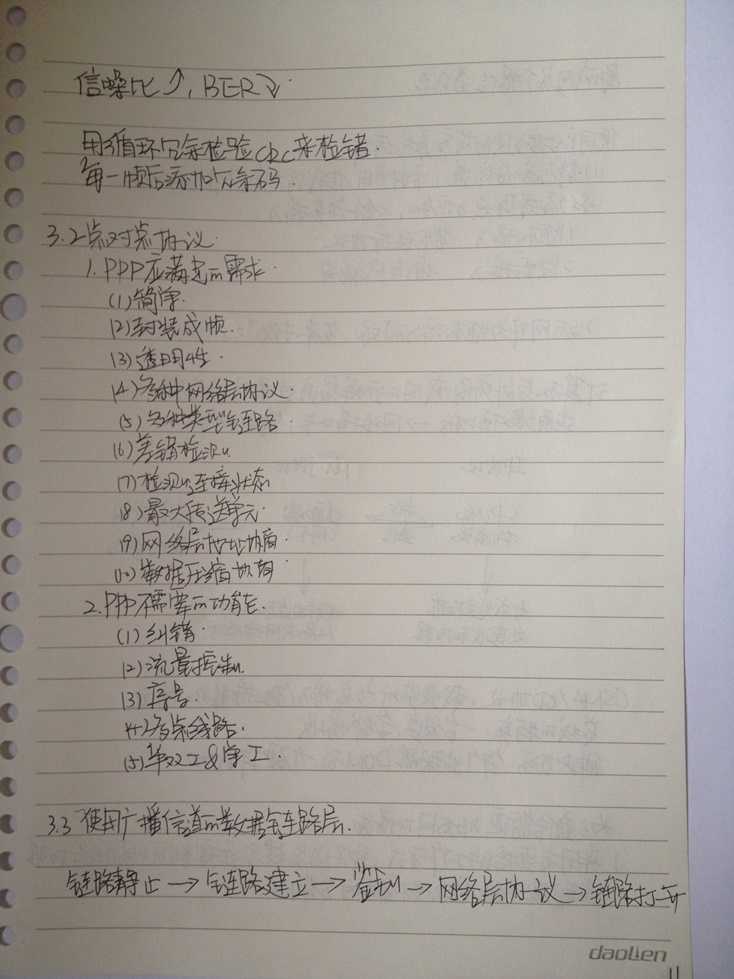 信噪比↑, BER↓.
用循环冗余检验CRC来检错.
每一帧后添加冗余码.
3.2 点对点协议.
1. PPP应满足的需求.
(1) 简单.
(2) 封装成帧.
(3) 透明性.
(4) 多种网络层协议.
(5) 多种类型链路.
(6) 差错检测.
(7) 检测连接状态
(8) 最大传送单元.
(9) 网络层地址协商.
(10) 数据压缩协商
2. PPP不需要的功能.
(1) 纠错.
(2) 流量控制.
(3) 序号.
(4) 多点线路.
(5) 半双工&单工.
3.3 使用广播信道的数据链路层.
链路静止→链路建立→鉴别→网络层协议→链路打开
daolien